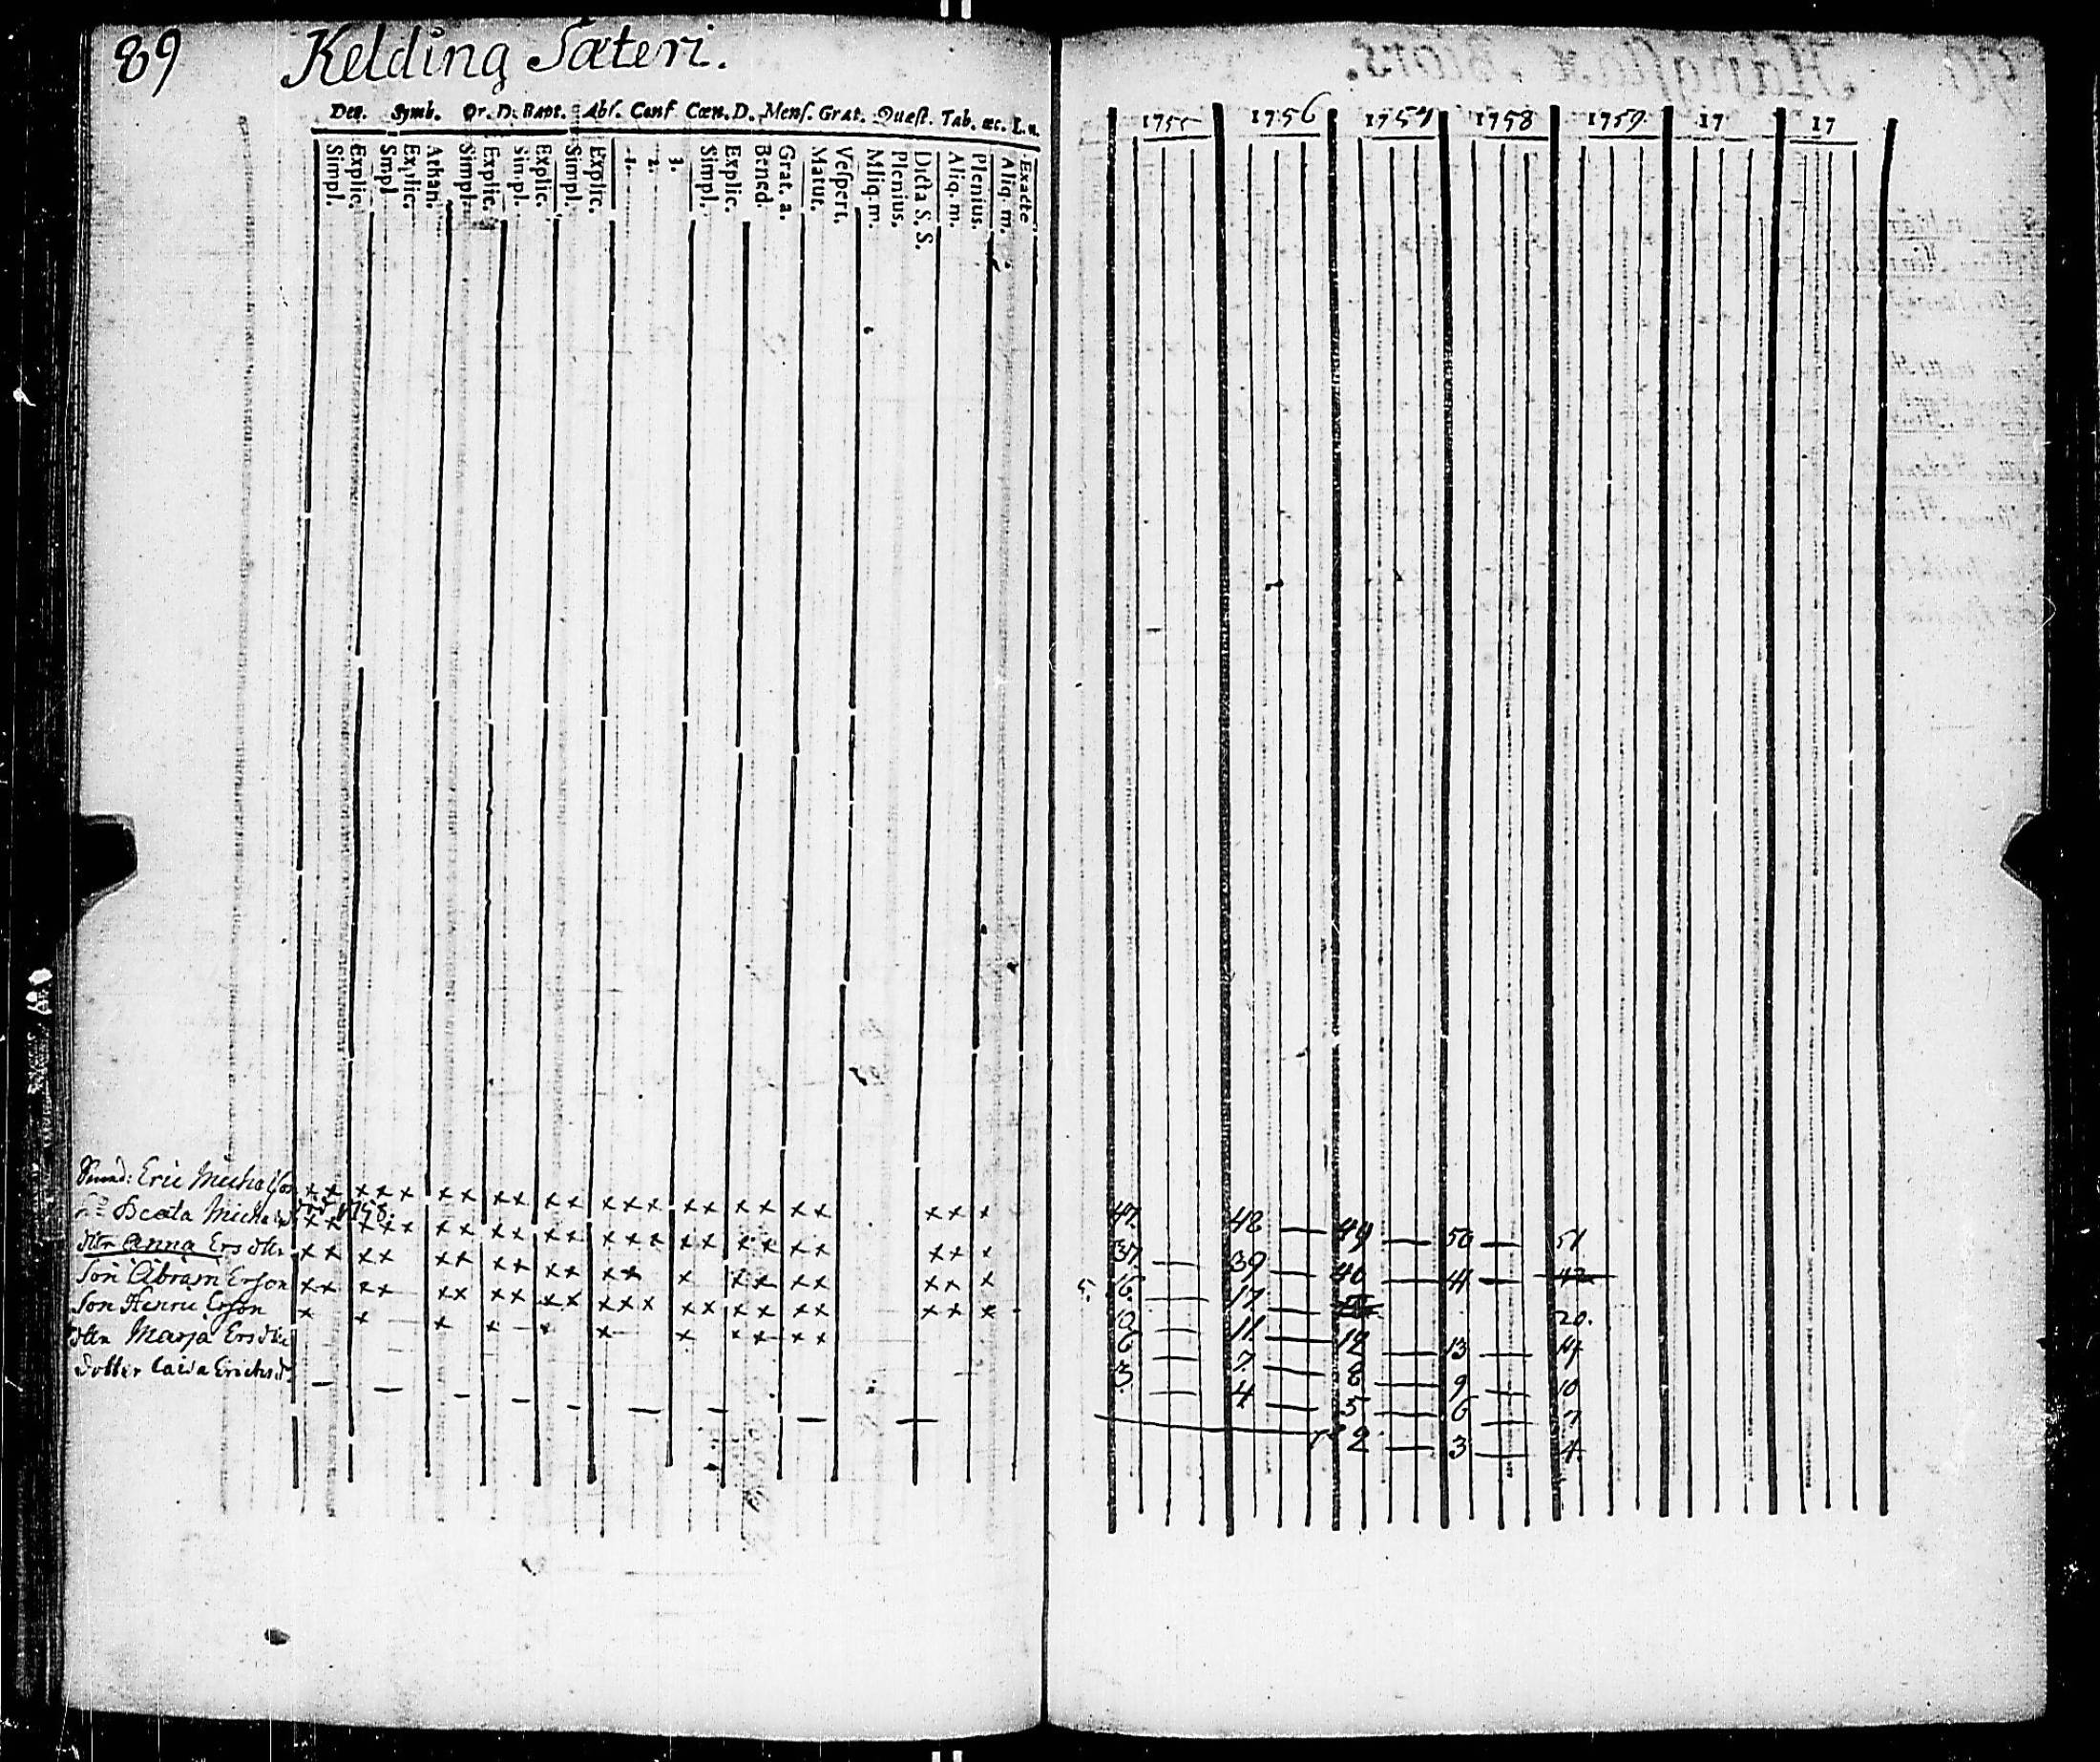 89 Kelding Sæteri.
Dec. Symb. Or. D. Bapt. Abs. Conf Cœn. D. Mens. Grat. Quæst. Tab. œc. L. u.
Simpl. Explic. Smpl Explic. Athan. Simpl. Explic. Simpl. Explic. Simpl. Explic. 1. 2. 3. Simpl. Explic. Bened. Grat. a. Matut. Vespert. Aliq. m. Plenius. Dicta S. S. Aliq. m. Plenius. Aliq. m. Exacte
1755 1756 1757 1758 1759 17 17
Eric Michelsson x x x x x x x x x x x x x x x x x x x x x x x 47. 48 — 49 — 50 — 51
Beata Michels 1758. x x x x x x x x x x x x x x x x x x x x x x x 37. — 39 — 40 — 41 — 42
dtter Anna Ersdtter x x x x x x x x x x x x x x x x x x x x 16. — 17 — 20.
Son Abram Erson x x x x x x x x x x x x x x x x x x x x x x 10 — 11 — 12 — 13 — 14
Son Henric Erson x x x x x x x x x x x 6 — 7 — 8 — 9 — 10
dtter Marja Ersdtter 3 — 4 — 5 — 6 — 7
Dotter Caisa Erichsd. — 2 — 3 — 4